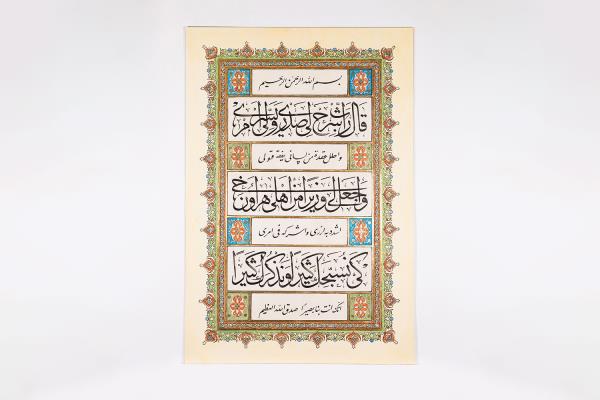 بسم الله الرحمن الرحیم
قال رب اشرح لی صدری و یسر لی امری
و احلل عقدة من لسانی یفقهوا قولی
و اجعل لی وزیرا من اهلی هرون اخی
اشدد به ازری و اشرکه فی امری
کی نسبحک کثیرا و نذکرک کثیرا
انک کنت بنا بصیرا صدق الله العظیم